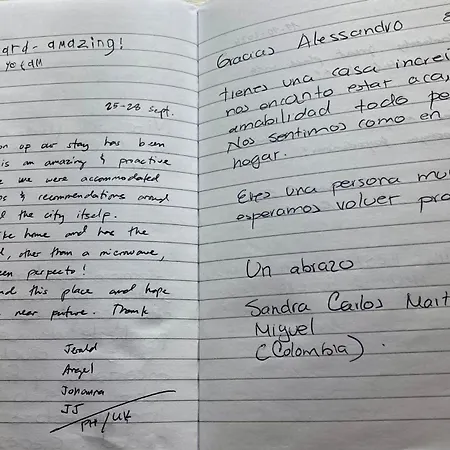 ard - amazing!
25-28 Sept.
on of our stay has been
is an amazing & proactive
e we were accommodated
s & recommendations around
d the city itself.
ke home and has the
d, other than a microwave,
een perfect!
nd this place and hope
near future. Thank
Jerald
Angel
Johanna
JJ
PH/UK
Gacias Alessandro &
tienes una casa increi
nos encanto estar aca,
amabilidad todo pe
Nos sentimos como en
hogar.
Eres una persona mu
esperamos volver pro
Un abrazo
Sandra Carlos Mait
Miguel
(Colombia).